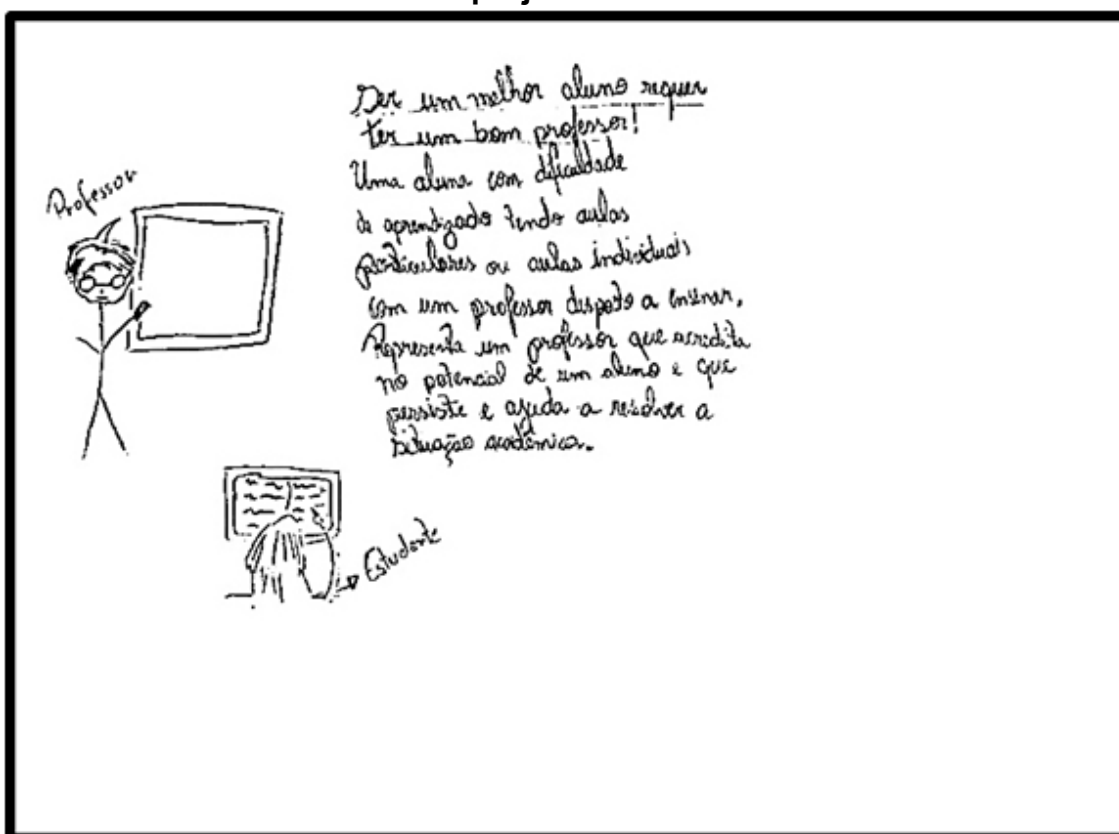 Ser um melhor aluno requer
ter um bom professor!
Uma aluna com dificuldade
de aprendizado tendo aulas
particulares ou aulas individuais
com um professor disposto a ensinar,
Representa um professor que acredita
no potencial de um aluno e que
persiste e ajuda a resolver a
situação acadêmica.
Professor
Estudante